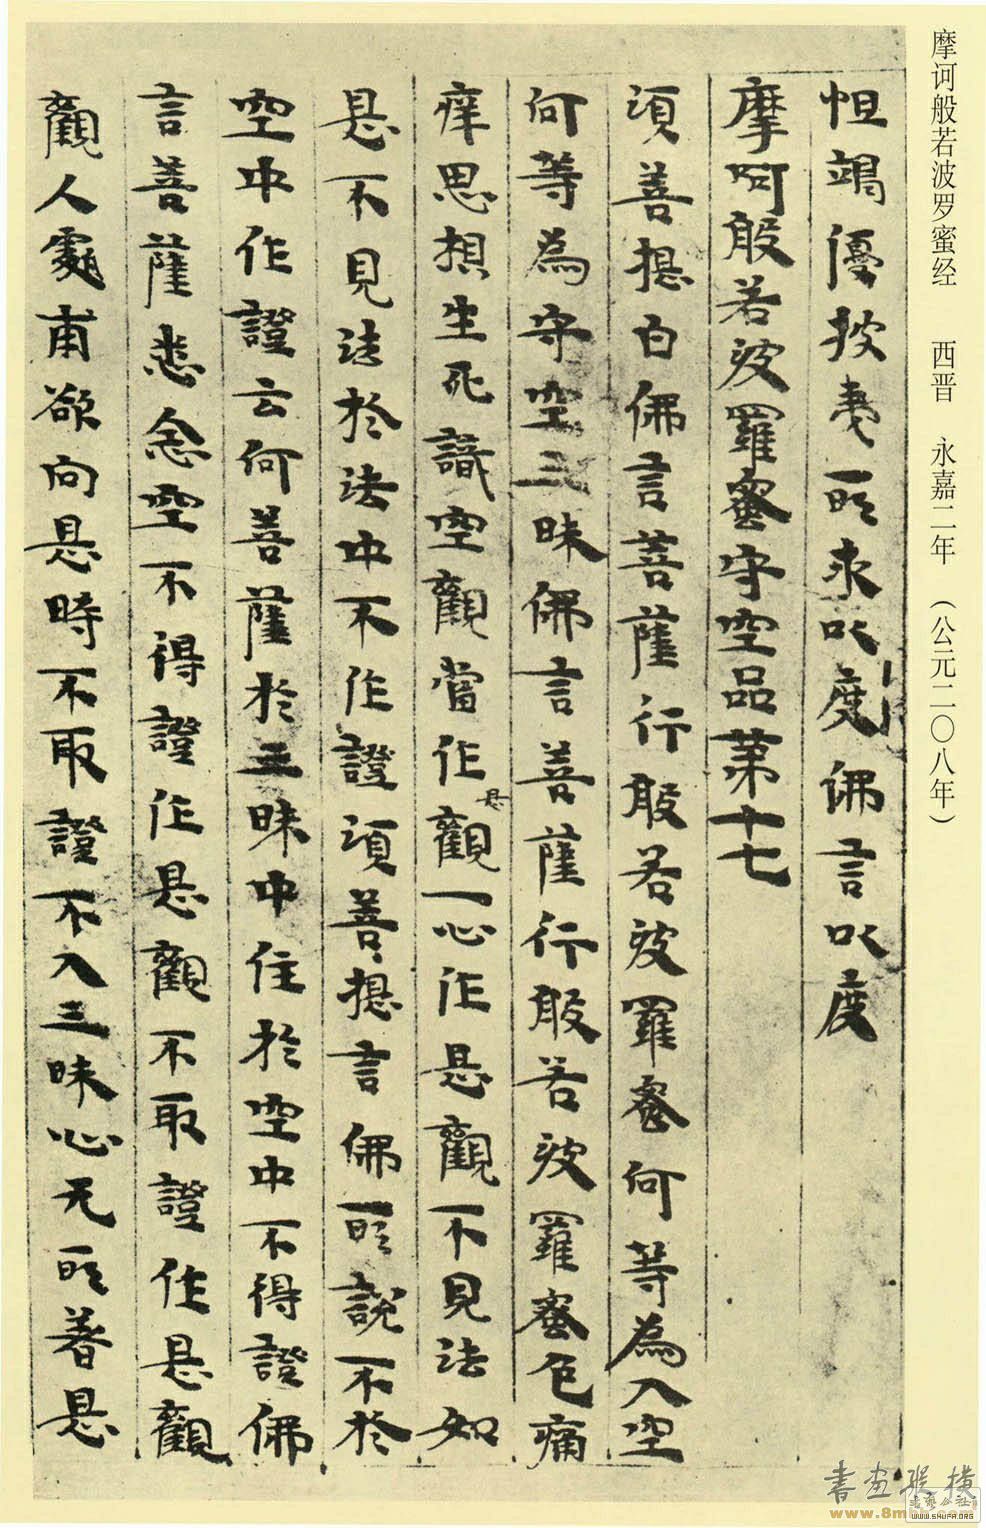 摩诃般若波罗蜜经 西晋 永嘉二年（公元二〇八年）
怛竭優披夷所求以度佛言以度
摩呵般若波羅蜜守空品第十七
須菩提白佛言菩薩行般若波羅蜜何等為入空
何等為守空三昧佛言菩薩行般若波羅蜜色痛
痒思想生死識空觀當作是觀一心作是觀不見法如
是不見法於法中不作證須菩提言佛所說不於
空中作證云何菩薩於三昧中住於空中不得證佛
言菩薩悉念空不得證作是觀不取證作是觀
觀人處甫欲向是時不取證不入三昧心无所著是
書畫縱橫
www.8mhh.com
書藝公社
WWW.SHUFA.ORG